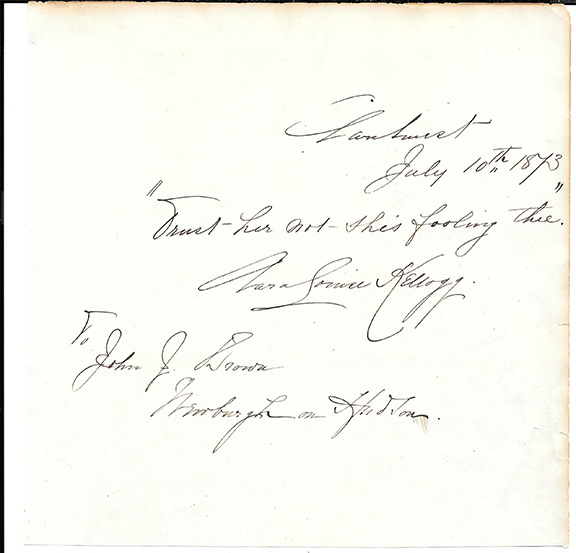 July 10th 1873
"Trust her not - She's fooling thee."
Clara Louise Kellogg.
To
John J. Brown
Newburgh on Hudson.